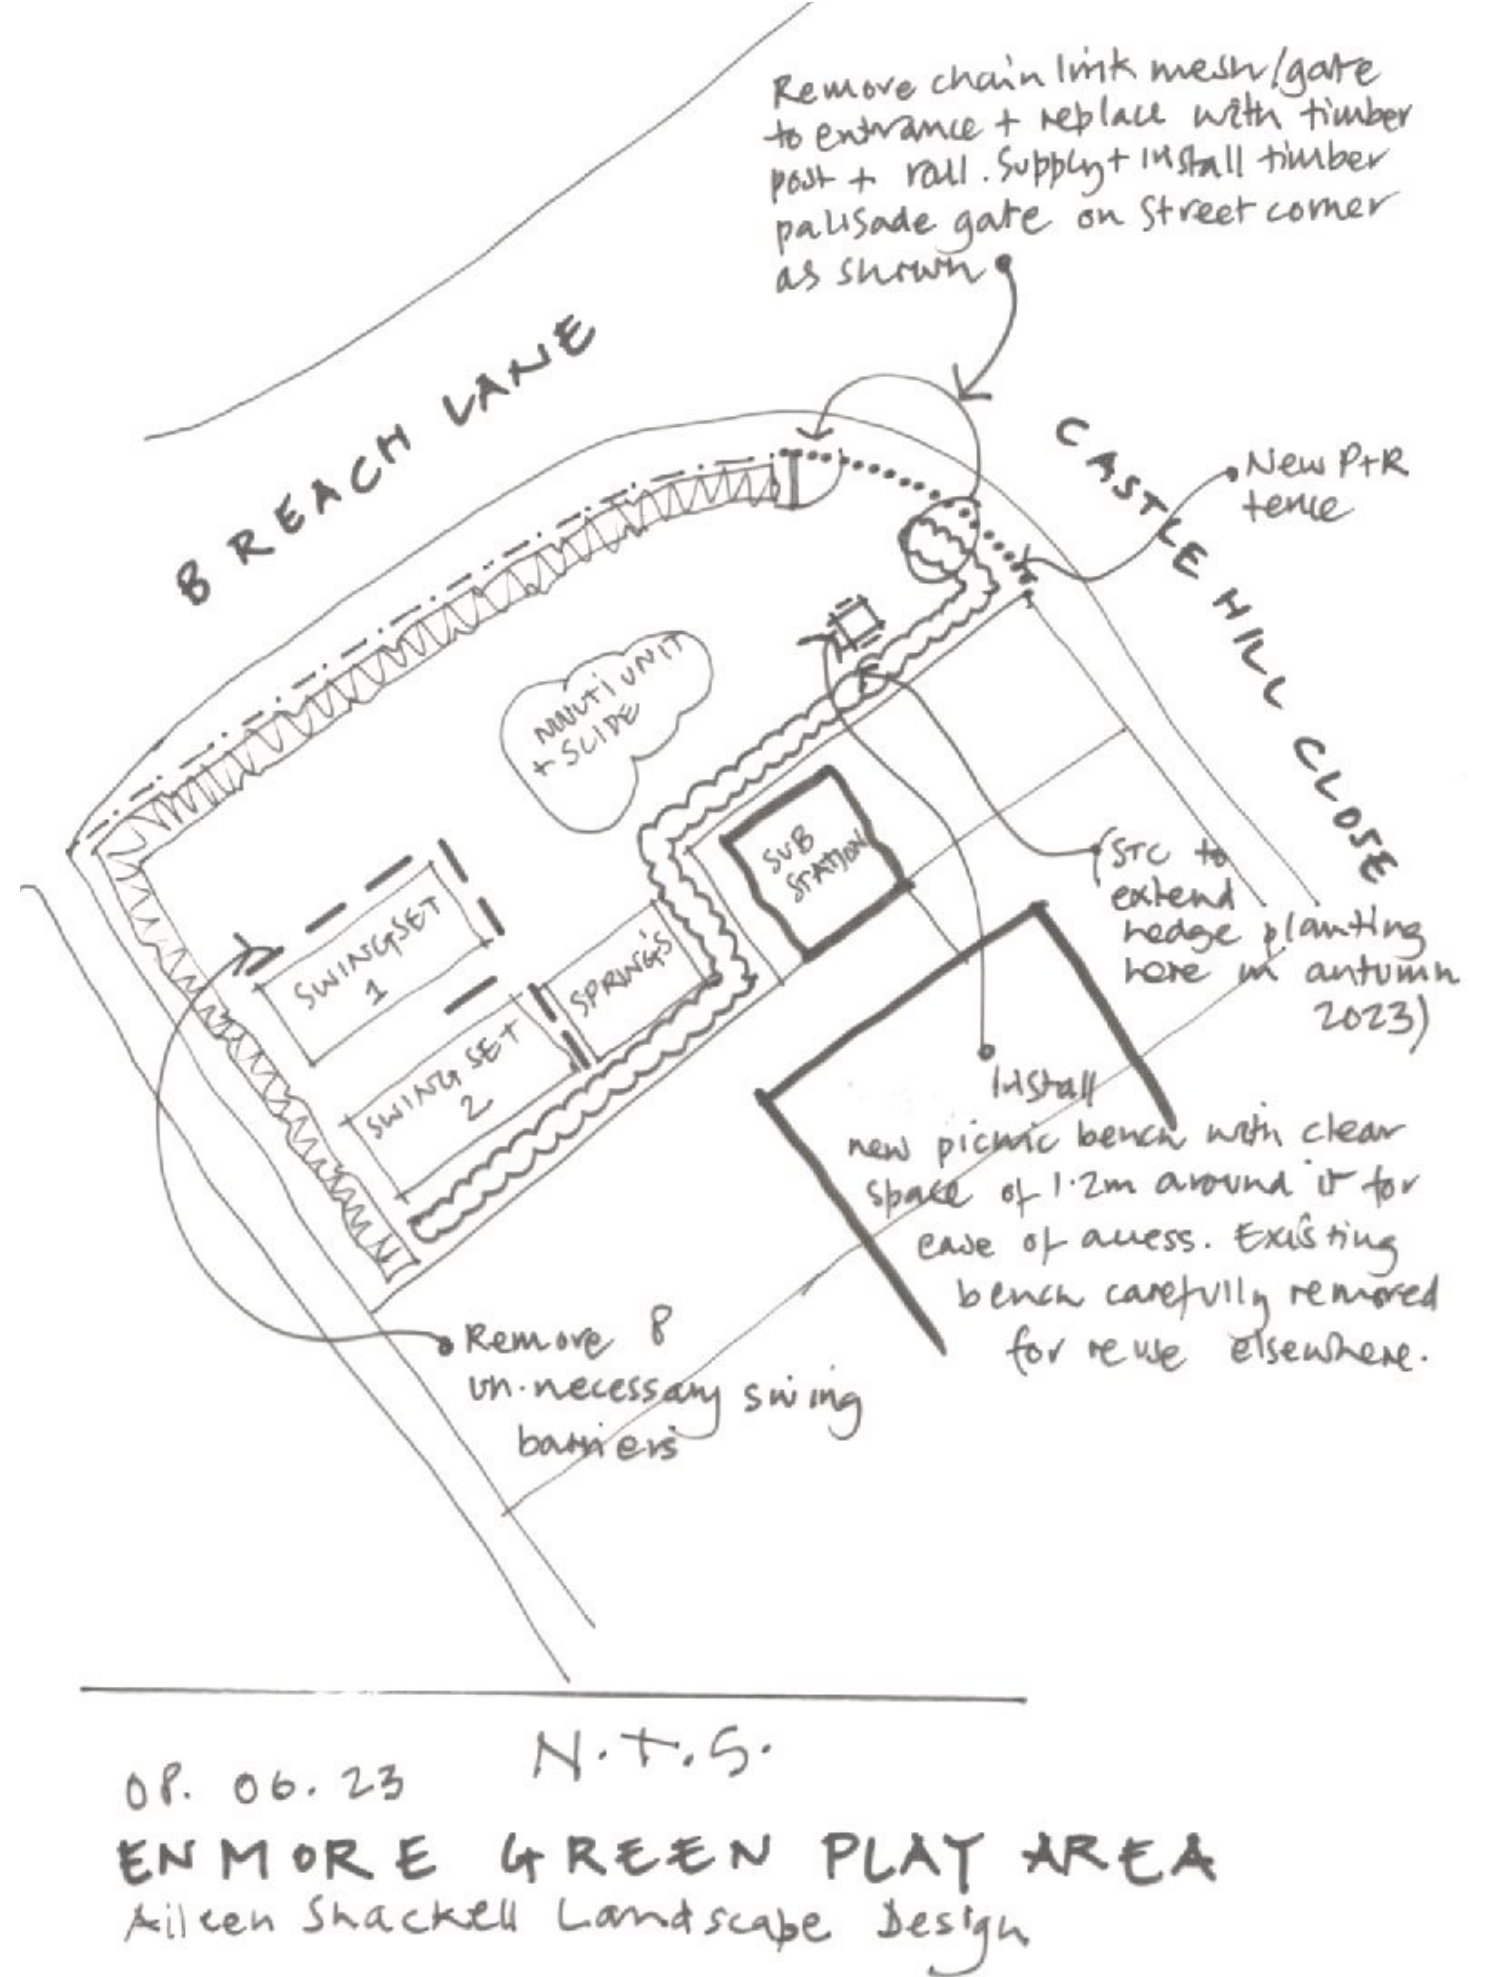 Remove chain link mesh/gate
to entrance + replace with timber
post + rail. Supply + install timber
palisade gate on street corner
as shown
BREACH LANE
CASTLE HILL CLOSE
New P+R
fence
MULTI UNIT
+ SLIDE
SUB
STATION
(STC to
extend
hedge planting
here in autumn
2023)
SWINGSET
1
SPRINGS
SWING SET
2
Install
new picnic bench with clear
space of 1.2m around it for
ease of access. Existing
bench carefully removed
for reuse elsewhere.
Remove 8
un-necessary swing
barriers
N.T.S.
08. 06. 23
ENMORE GREEN PLAY AREA
Aileen Shackell Landscape Design